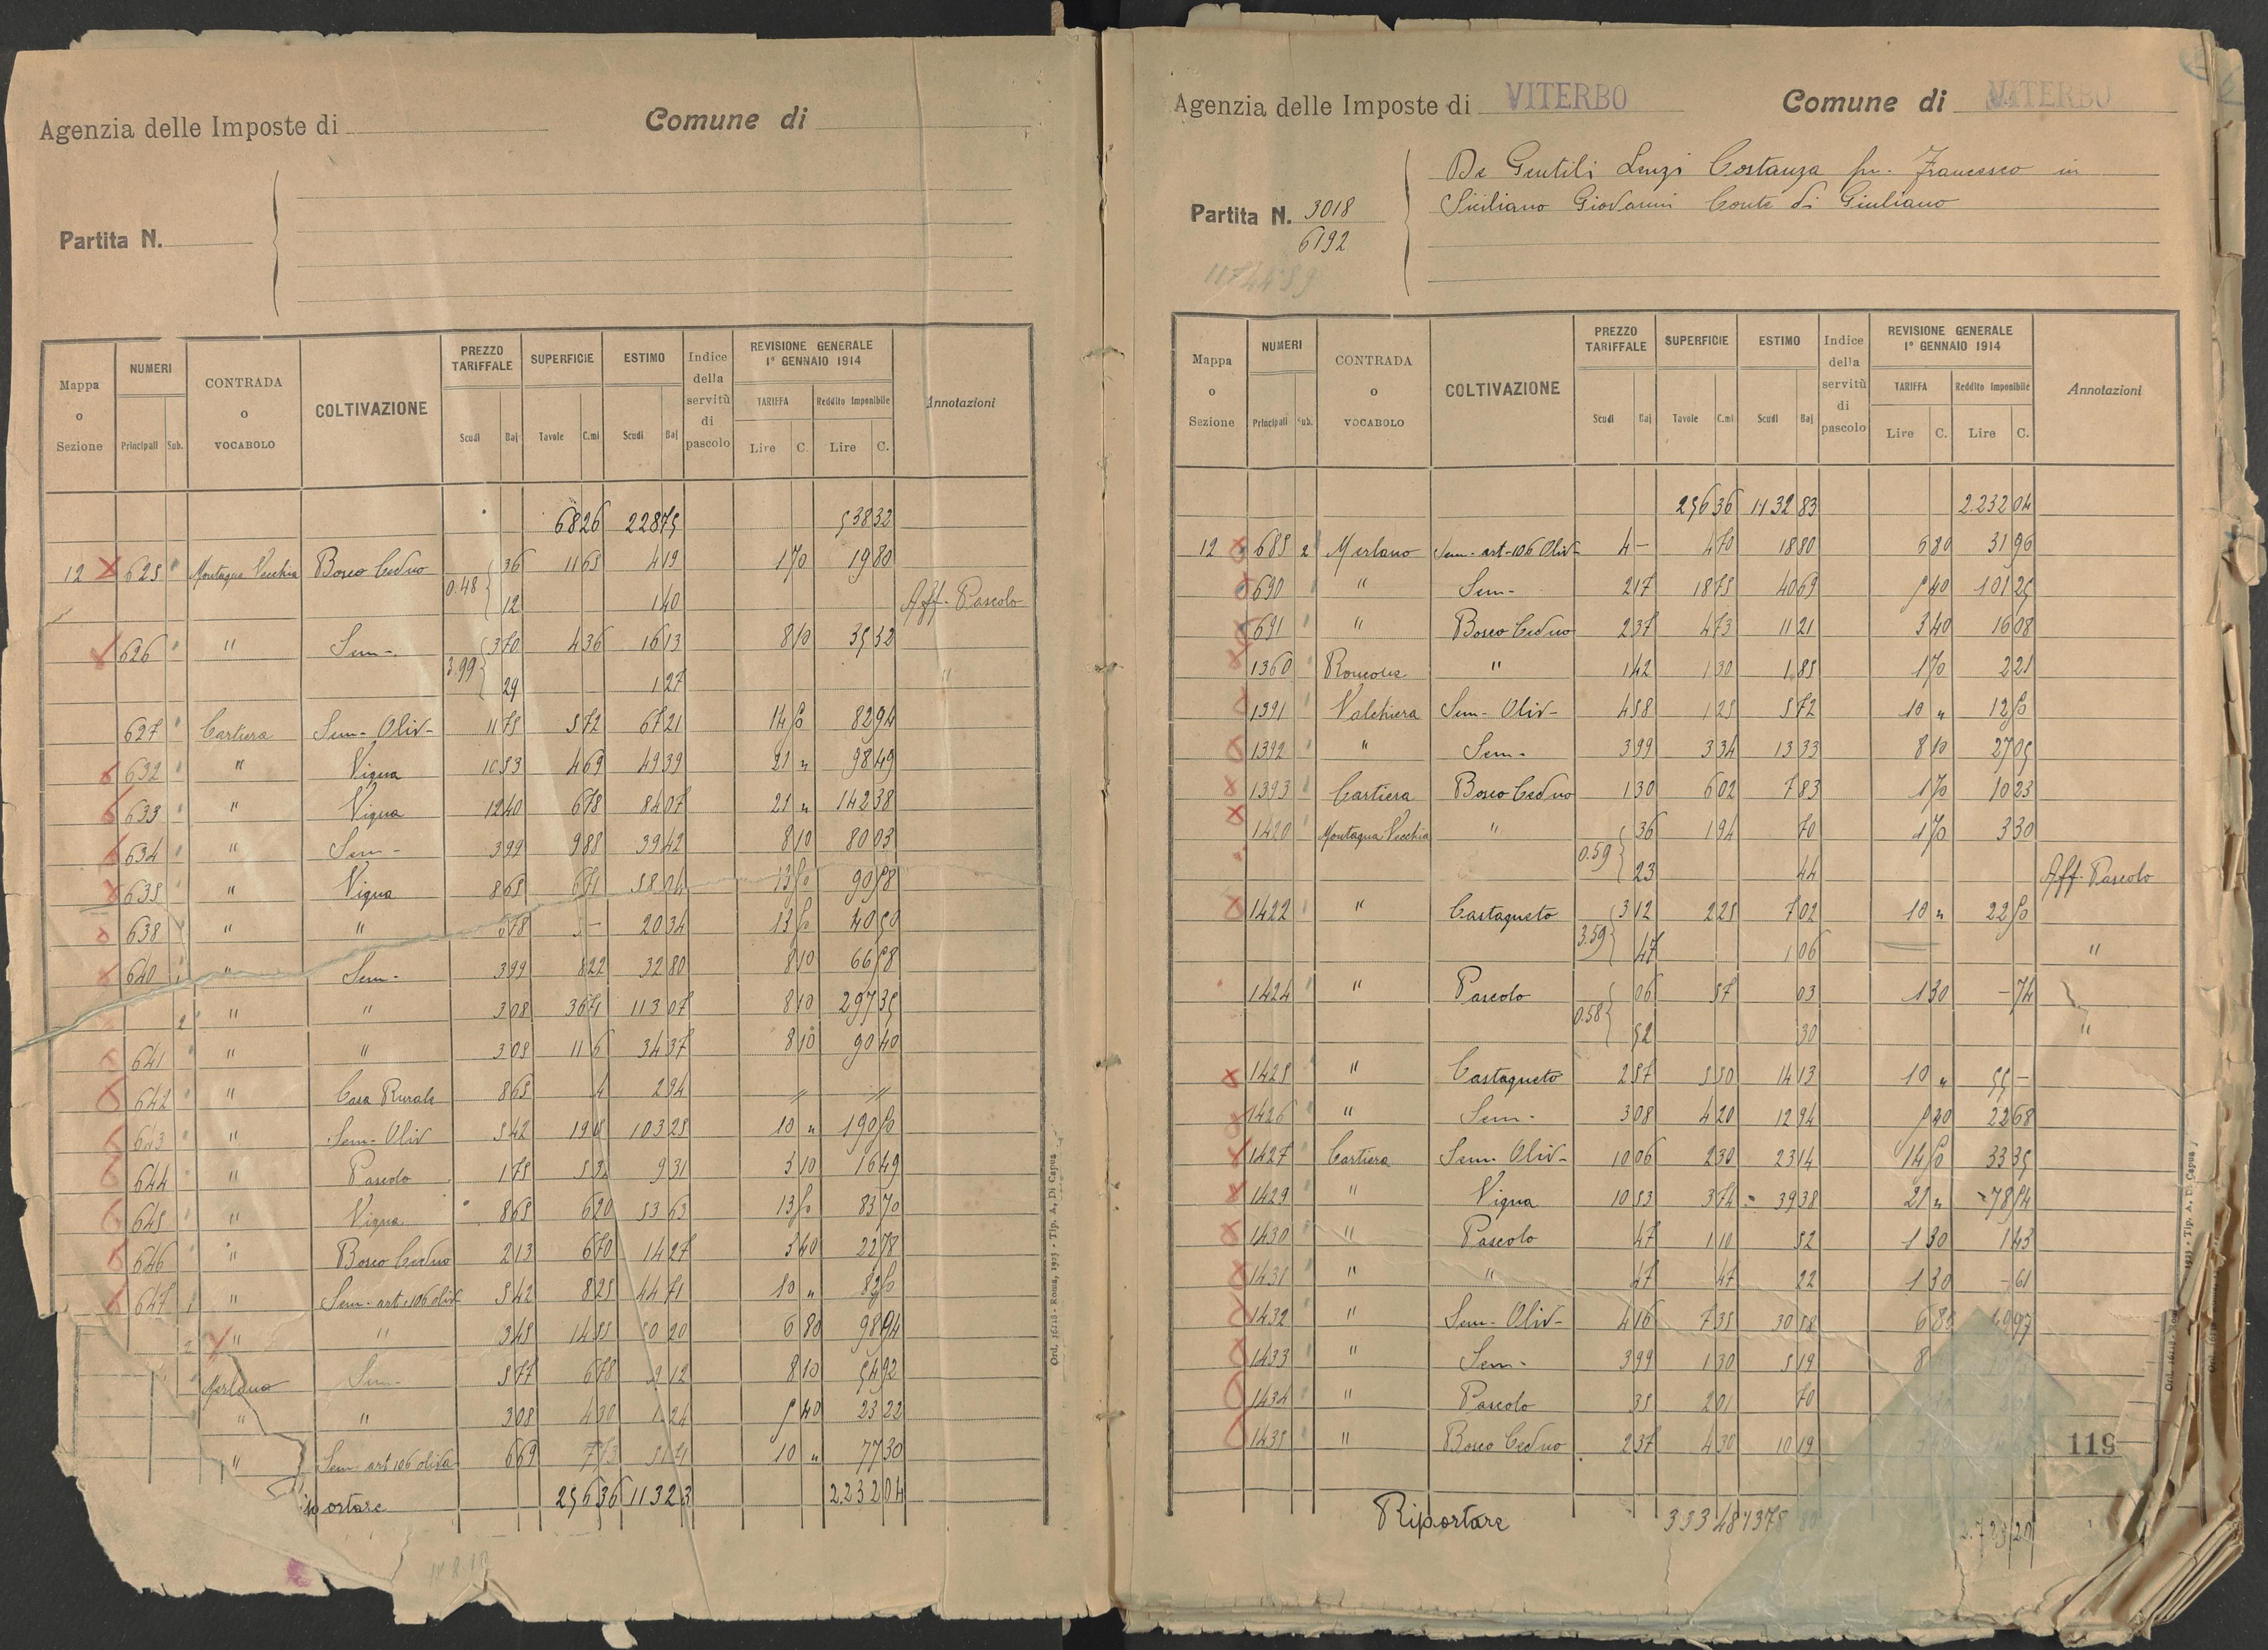 Agenzia delle Imposte di
Comune di
Partita N.
Mappa o Sezione | NUMERI Principali Sub. | CONTRADA o VOCABOLO | COLTIVAZIONE | PREZZO TARIFFALE Scudi Baj | SUPERFICIE Tavole C.mi | ESTIMO Scudi Baj | Indice della servitù di pascolo | REVISIONE GENERALE 1° GENNAIO 1914 TARIFFA Lire C. Reddito Imponibile Lire C. | Annotazioni
68 26 228 75 538 32
12 625 Montagna Vecchia Bosco Ceduo 36 11 65 4 19 1 70 19 80
0.48 12 1 40 Aff. Pascolo
626 " Sem- 3 70 4 36 16 13 8 10 35 32
3.99 29 1 27 "
627 Cartiera Sem- Oliv- 11 75 5 72 67 21 14 50 82 94
632 " Vigna 10 53 4 69 49 39 21 " 98 49
633 " Vigna 12 40 6 78 84 07 21 " 142 38
634 " Sem- 3 99 9 88 39 42 8 10 80 03
635 " Vigna 8 65 6 71 58 04 13 50 90 58
638 " " 6 78 3 - 20 34 13 50 40 50
640 1 " Sem- 3 99 8 22 32 80 8 10 66 58
2 " " 3 08 36 71 113 07 8 10 297 35
641 " " 3 08 11 16 34 37 8 10 90 40
642 " Casa Rurale 8 65 4 2 94 " "
643 " Sem- Oliv 5 42 19 05 103 25 10 " 190 50
644 " Pascolo 1 75 5 32 9 31 3 10 16 49
645 " Vigna 8 65 6 20 53 63 13 50 83 70
646 " Bosco Ceduo 2 13 6 70 14 27 3 40 22 78
647 1 " Sem- art. 106 oliv 5 42 8 25 44 71 10 " 82 50
2 " " 3 45 14 55 50 20 6 80 98 94
Merlano Sem- 5 77 6 78 39 12 8 10 54 92
" " 3 08 4 30 24 5 40 23 22
" Sem art 106 oliva 6 69 7 73 10 " 77 30
portare 256 36 1132 3 2.232 04
Ord. 16118 - Roma, 1923 - Tip. A. Di Capua
Agenzia delle Imposte di VITERBO
Comune di VITERBO
De Gentili Luzi Costanza fu. Francesco in
Siciliano Giovanni Conte di Giuliano
Partita N. 3018
6192
Mappa o Sezione | NUMERI Principali Sub. | CONTRADA o VOCABOLO | COLTIVAZIONE | PREZZO TARIFFALE Scudi Baj | SUPERFICIE Tavole C.mi | ESTIMO Scudi Baj | Indice della servitù di pascolo | REVISIONE GENERALE 1° GENNAIO 1914 TARIFFA Lire C. Reddito Imponibile Lire C. | Annotazioni
256 36 1132 83 2.232 04
12 685 2 Merlano Sem- art- 106 Oliv- 4 - 4 70 18 80 6 80 31 96
690 " Sem- 2 17 18 75 40 69 5 40 101 25
691 " Bosco Ceduo 2 37 4 73 11 21 3 40 16 08
1360 " 1 42 1 30 1 85 1 70 2 21
1391 Valchiera Sem- Oliv- 4 58 1 25 5 72 10 " 12 50
1392 " Sem- 3 99 3 34 13 33 8 10 27 05
1393 Cartiera Bosco Ceduo 1 30 6 02 7 83 1 70 10 23
1420 Montagna Vecchia " 36 1 94 70 1 70 3 30
0.59 23 44 Aff. Pascolo
1422 " Castagneto 3 12 2 25 7 02 10 " 22 50
3.59 47 1 06 "
1424 " Pascolo 06 57 03 1 30 - 74
0.58 52 30 "
1425 " Castagneto 2 57 5 50 14 13 10 " 55 -
1426 " Sem- 3 08 4 20 12 94 5 40 22 68
1427 Cartiera Sem- Oliv- 10 06 2 30 23 14 14 50 33 35
1429 " Vigna 10 53 3 74 39 38 21 " 78 54
1430 " Pascolo 47 1 10 52 1 30 1 43
1431 " " 47 47 22 1 30 - 61
1432 " Sem- Oliv- 4 16 7 35 30 58 6 80 97
1433 " Sem- 3 99 1 30 5 19 8
1434 " Pascolo 35 2 01 70
1435 " Bosco Ceduo 2 37 4 30 10 19
119
Riportare 333 48 1378 80 2.723 20